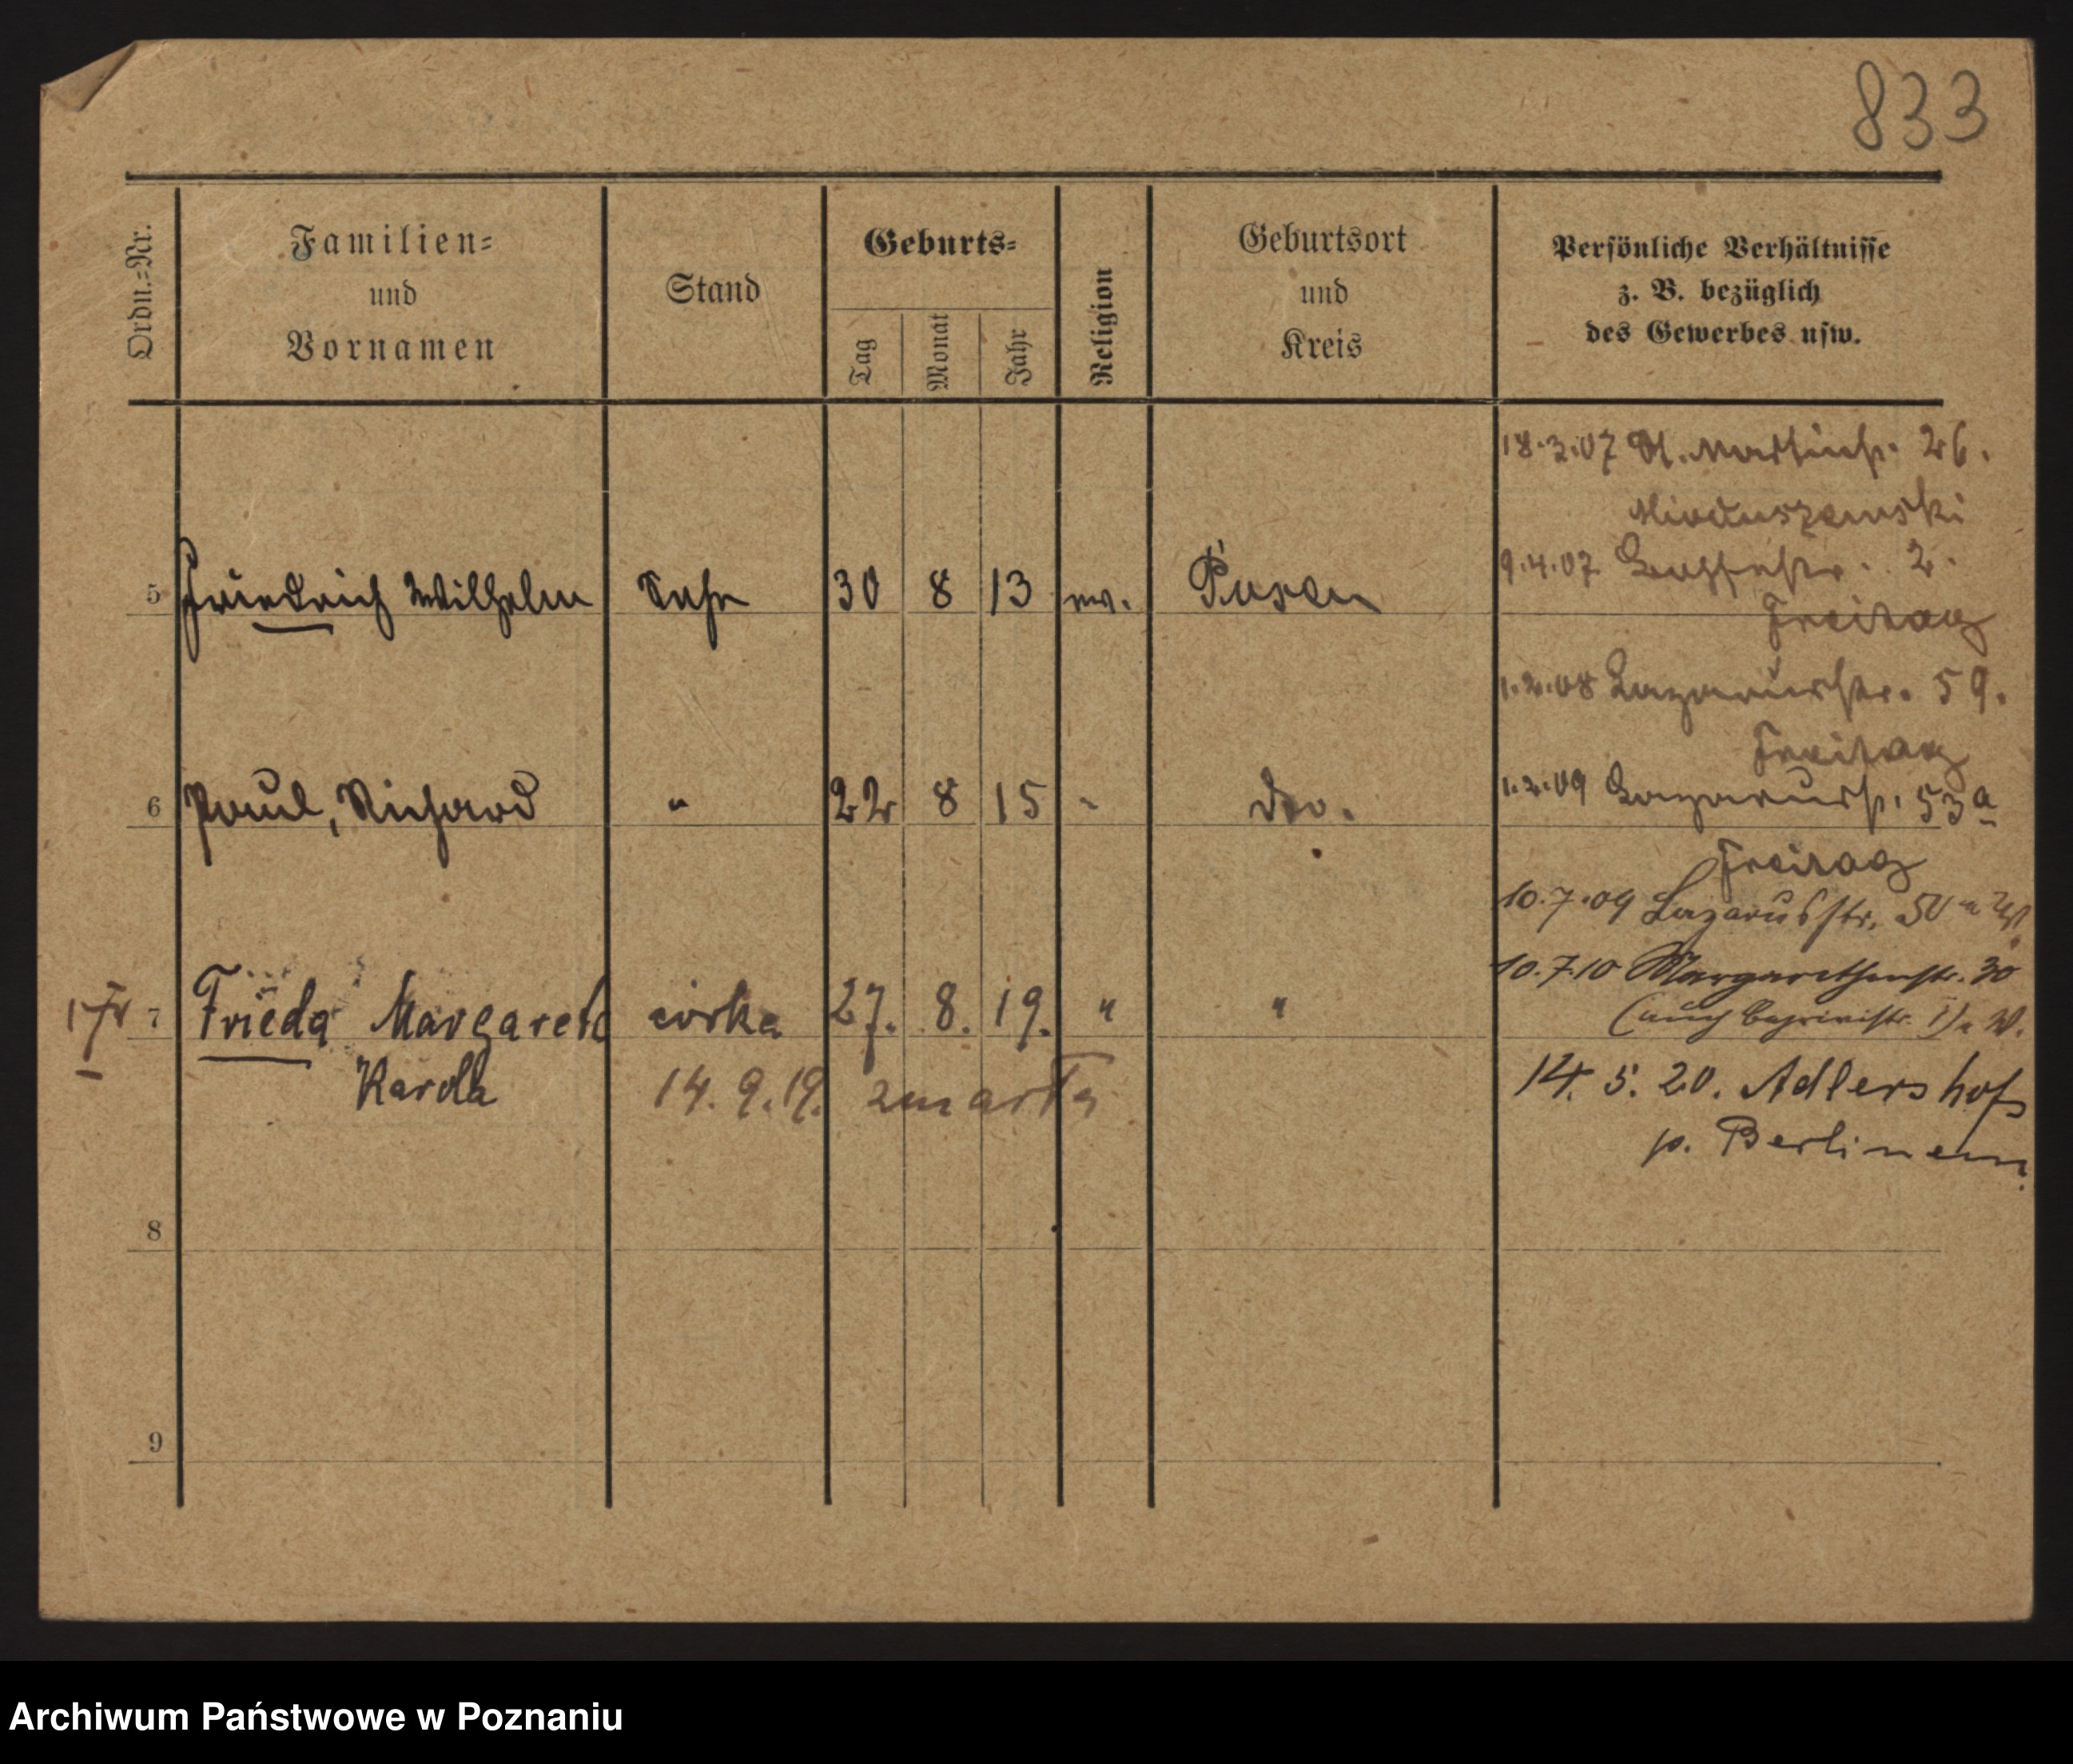 833
Ordn.=Nr.
Familien=
und
Vornamen
Stand
Geburts=
Tag
Monat
Jahr
Religion
Geburtsort
und
Kreis
Persönliche Verhältnisse
z. B. bezüglich
des Gewerbes usw.
18.3.07 St. Martinstr. 26.
9.4.07 2.
5 Friedrich Wilhelm Sohn 30 8 13 ev. Posen
Freitag
1.2.08 Lazarusstr. 59.
Freitag
6 Paul, Richard " 22 8 15 " do.
1.2.09 Lazarusstr. 53a
Freitag
10.7.09 Lazarusstr.
10.7.10 Margarethenstr. 30
7 Frieda Margarete córka 27. 8. 19. " "
(auch
Karola
14. 9. 19. zmarła
14. 5. 20. Adlershof
p. Berlinem
8
9
Archiwum Państwowe w Poznaniu